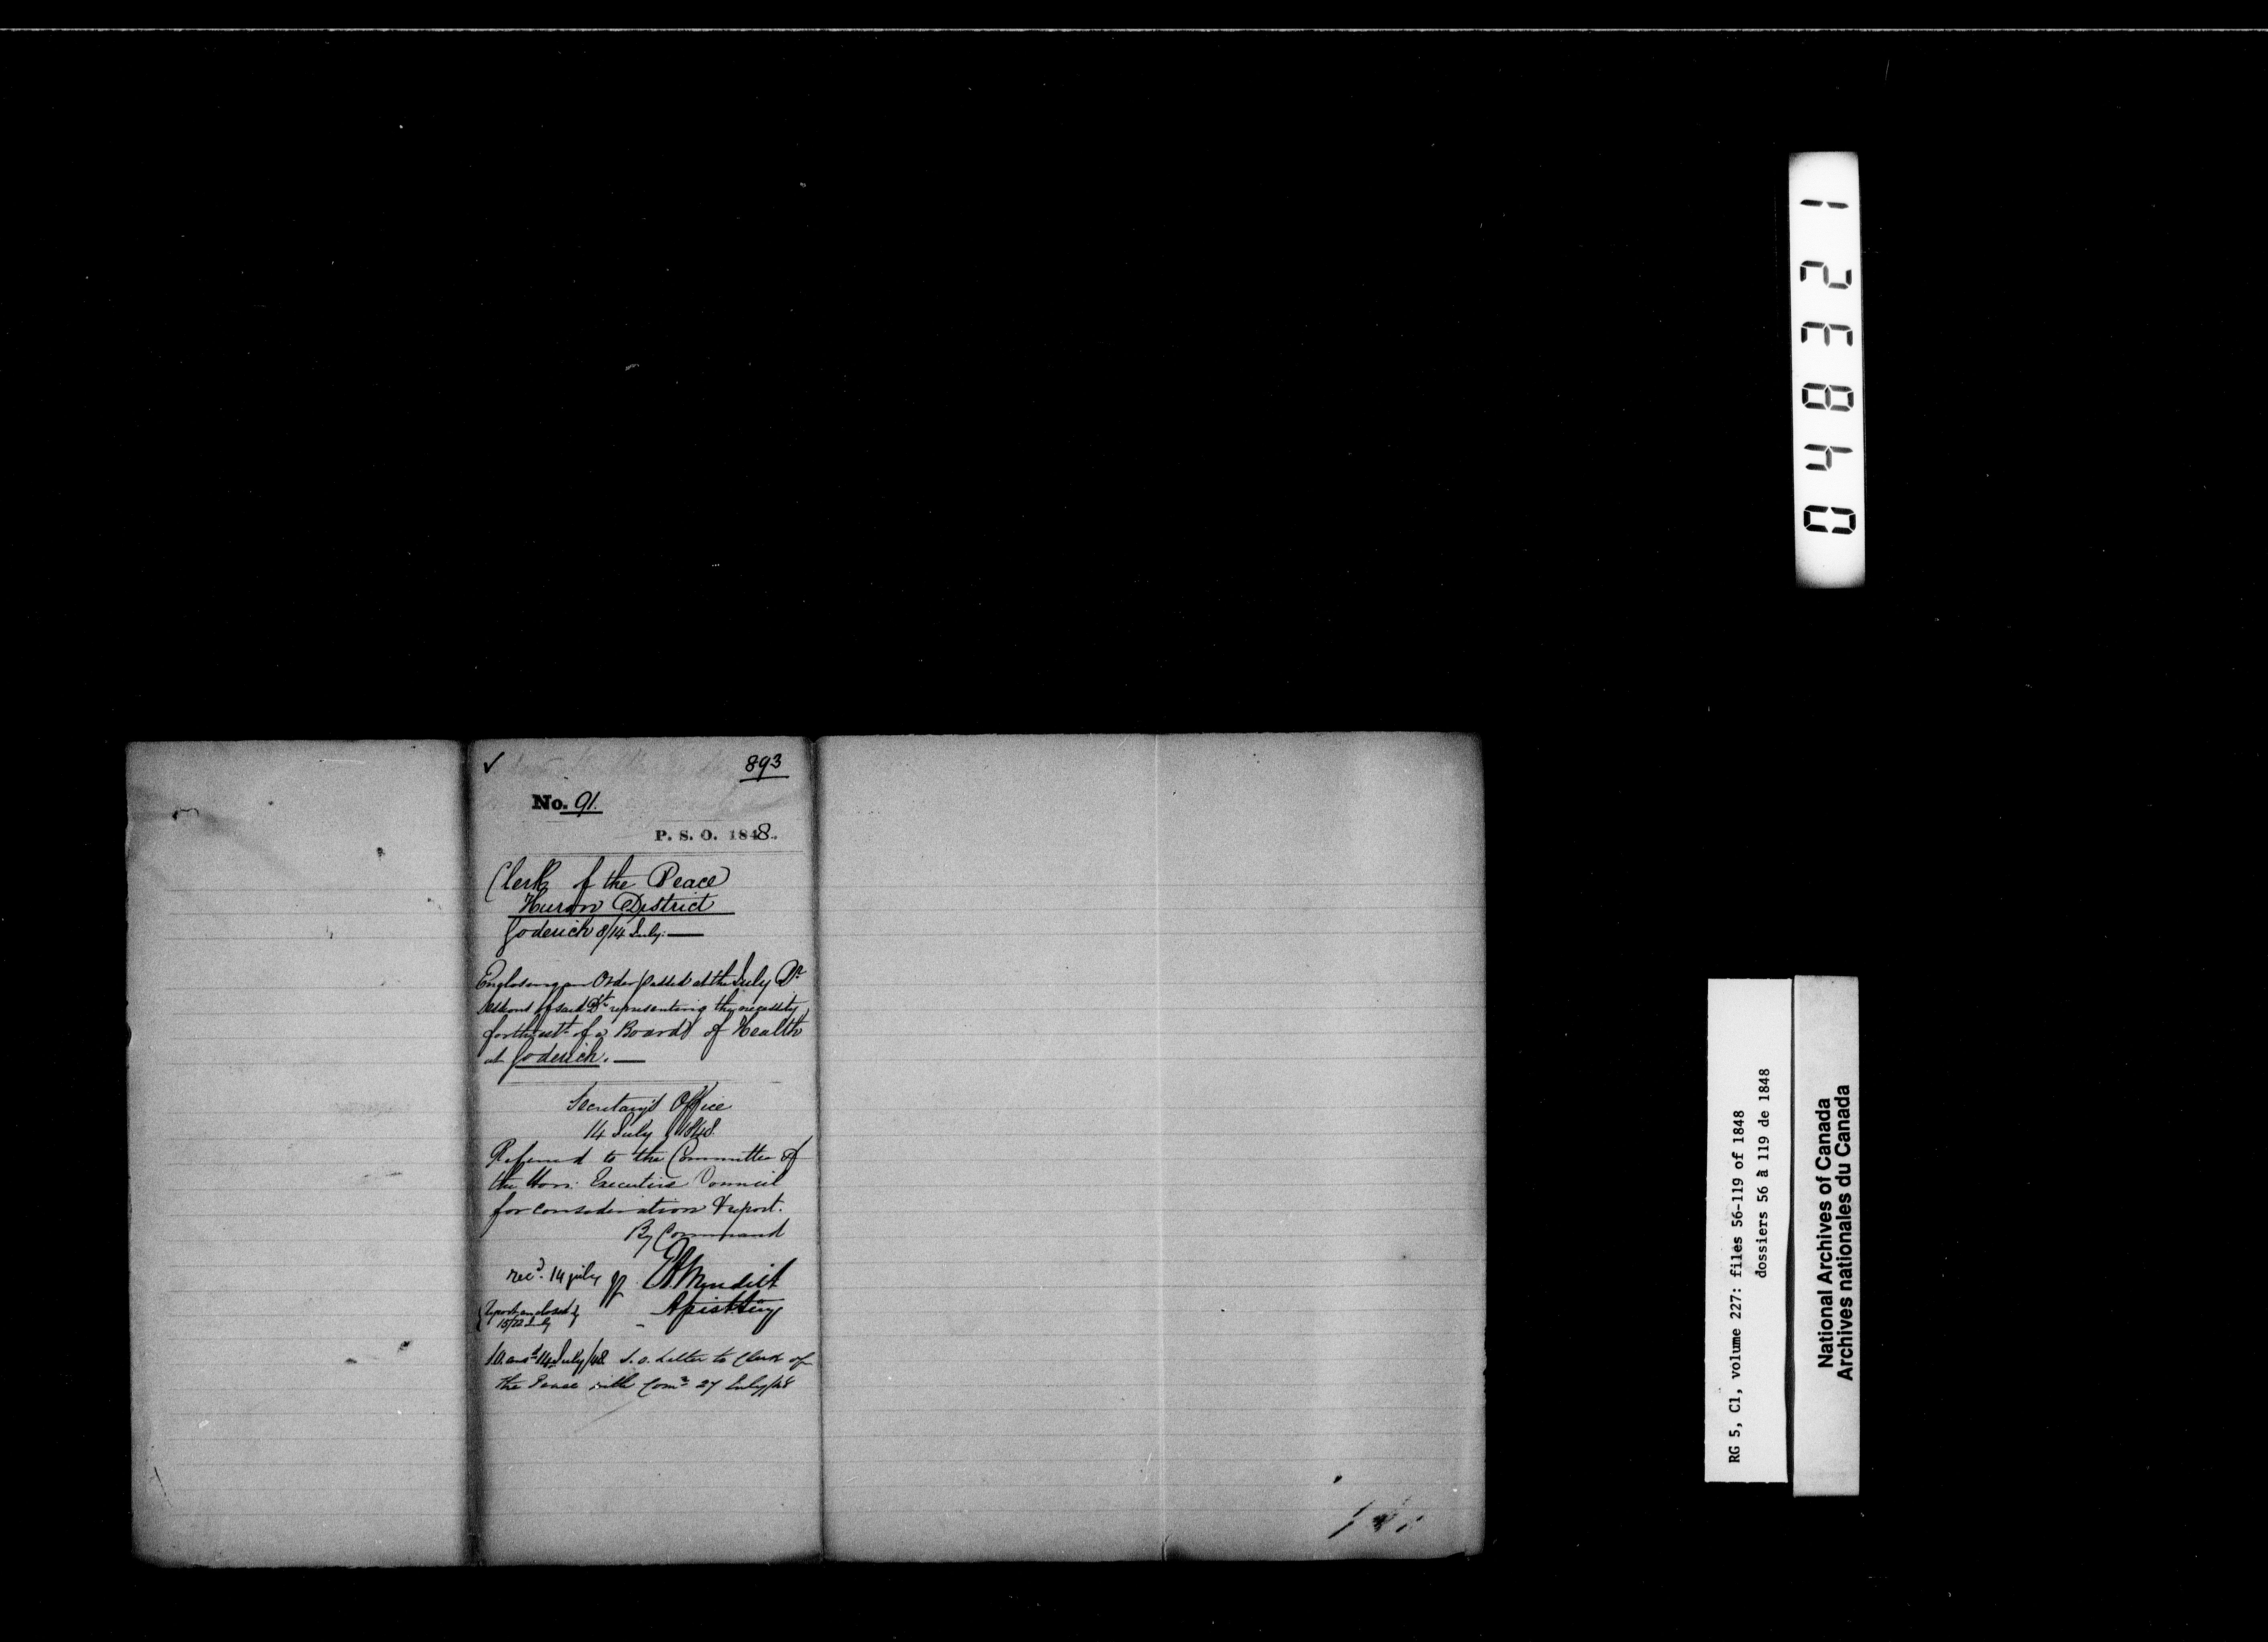 ✓ 893
No. 91.
P. S. O. 1848.
Clerk of the Peace
Huron District
Goderich 8/14 July. —
Enclosing an Order passed at the July Qr
Sessions of said Dt representing the necessity
forthwith of a Board of Health
at Goderich. —
Secretary's Office
14 July 1848.
Referred to the Committee of
the Hon: Executive Council
for consideration & report.
By Command
recd. 14 july
Asist. Secy
Report enclosed
15/22 July
ansd 14 July/48 S. O. Letter to Clerk of
the Peace with Comn 27 July/48
048321
RG 5, C1, volume 227: files 56-119 of 1848
dossiers 56 à 119 de 1848
National Archives of Canada
Archives nationales du Canada